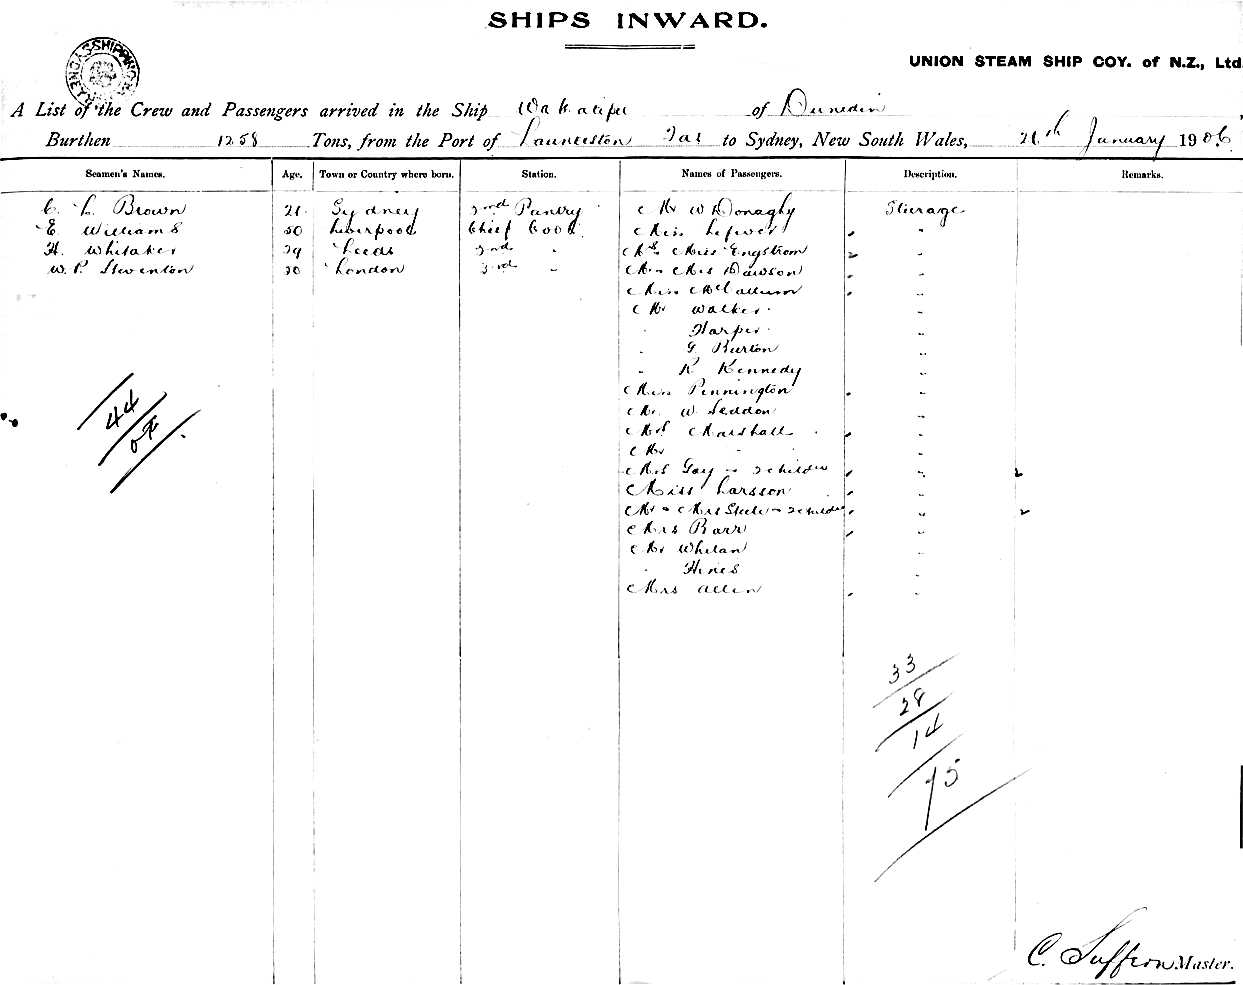 SHIPS INWARD.
SHIPPING
UNION STEAM SHIP COY. of N.Z., Ltd
A List of the Crew and Passengers arrived in the Ship Wakatipu of Dunedin
Burthen 1258 Tons, from the Port of Launceston Tas to Sydney, New South Wales, 26th January 1906
Seamen's Names. Age. Town or Country where born. Station. Names of Passengers. Description. Remarks.
C. L. Brown 21 Sydney 3rd Pantry Mr W Donaghy Steerage
E. Williams 50 Liverpool Chief Cook Miss Lefevre "
H. Whitaker 29 Leeds 2nd " Mrs Miss Engstrom "
W. P. Swenton 20 London 3rd " Miss Mrs Dawson "
Miss McCallum "
Mr Walker "
" Harper "
" G Burton "
" R Kennedy "
Miss Pennington "
Mr W Seddon "
Mrs Marshall "
Mr " "
Mrs Gay - 2 childn "
Miss Larsson "
Mr - Mrs Steele - 2 childn "
Mrs Barr "
Mr Whelan "
" Hines "
Mrs Allen "
44
33
28
14
75
C. Master.